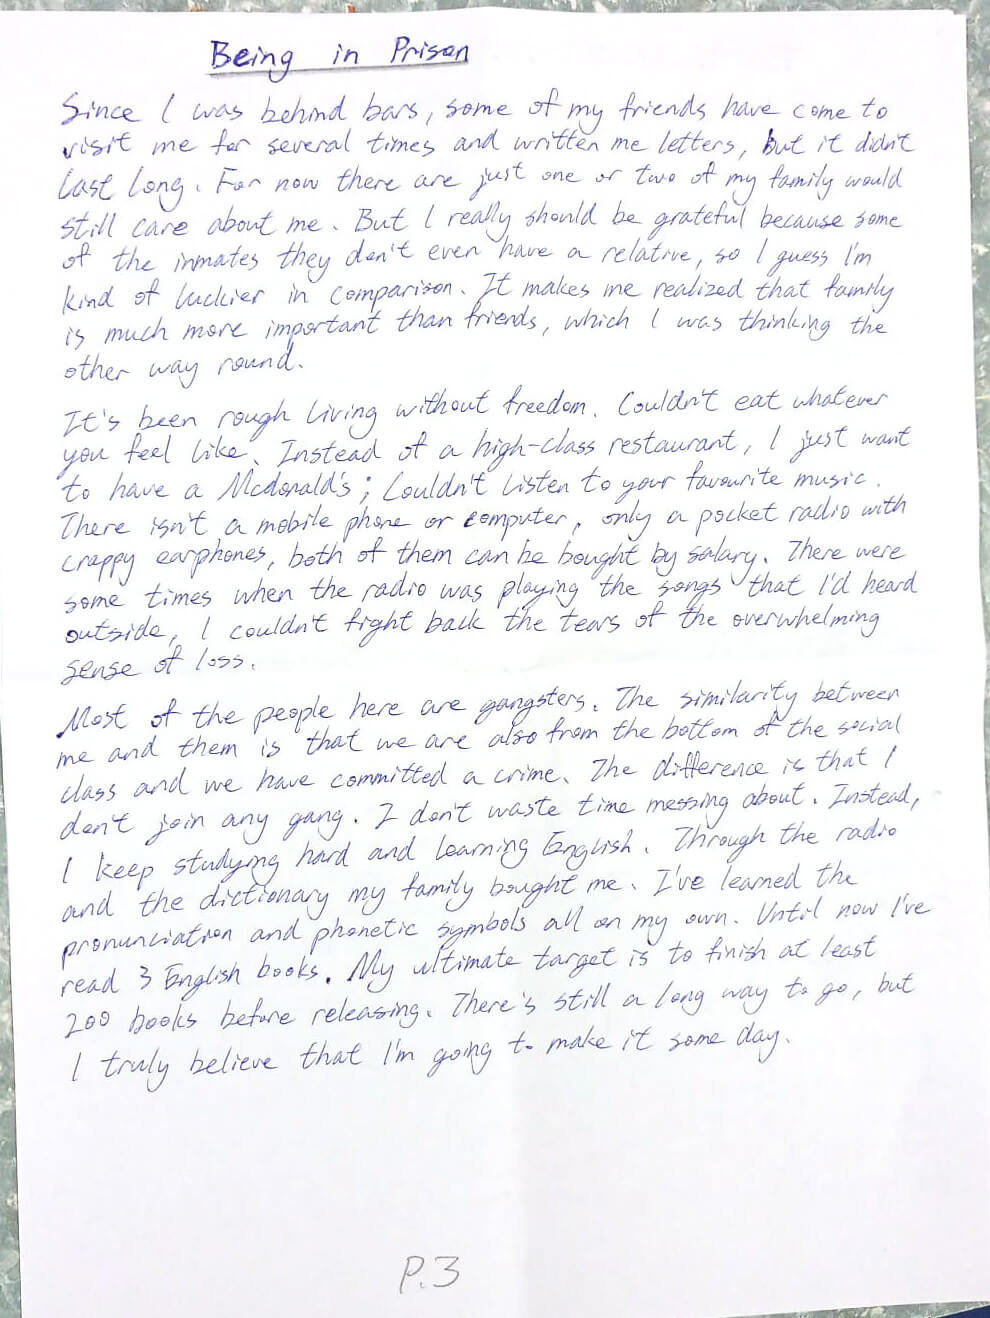 Being in Prison
Since I was behind bars, some of my friends have come to
visit me for several times and written me letters, but it didn't
last long. For now there are just one or two of my family would
still care about me. But I really should be grateful because some
of the inmates they don't even have a relative, so I guess I'm
kind of luckier in comparison. It makes me realized that family
is much more important than friends, which I was thinking the
other way round.
It's been rough living without freedom. Couldn't eat whatever
you feel like. Instead of a high-class restaurant, I just want
to have a Mcdonald's; Couldn't listen to your favourite music.
There isn't a mobile phone or computer, only a pocket radio with
crappy earphones, both of them can be bought by salary. There were
some times when the radio was playing the songs that I'd heard
outside, I couldn't fight back the tears of the overwhelming
sense of loss.
Most of the people here are gangsters. The similarity between
me and them is that we are also from the bottom of the social
class and we have committed a crime. The difference is that I
don't join any gang. I don't waste time messing about. Instead,
I keep studying hard and learning English. Through the radio
and the dictionary my family bought me. I've learned the
pronunciation and phonetic symbols all on my own. Until now I've
read 3 English books. My ultimate target is to finish at least
200 books before releasing. There's still a long way to go, but
I truly believe that I'm going to make it some day.
P.3